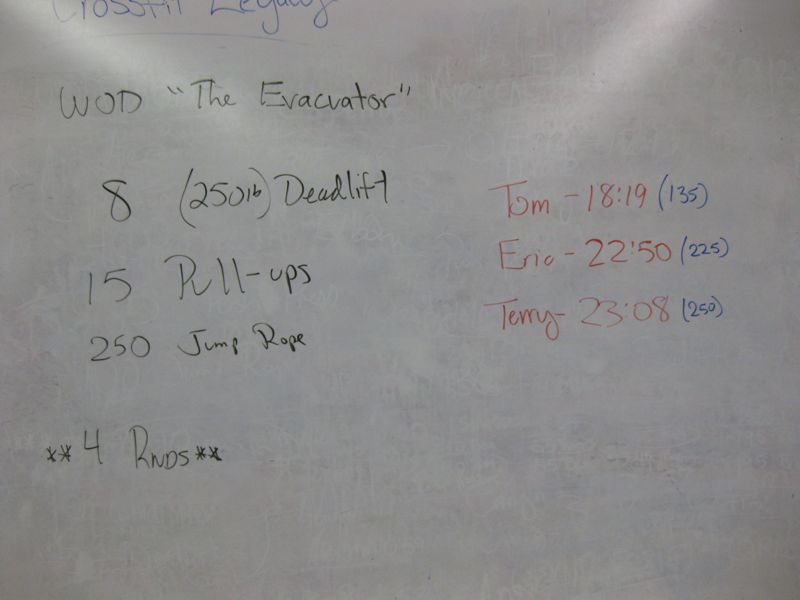 CrossFit Legacy
WOD "The Evacuator"
8 (250lb) Deadlift
15 Pull-ups
250 Jump Rope
**4 RNDS**
Tom - 18:19 (135)
Eric - 22:50 (225)
Terry - 23:08 (250)